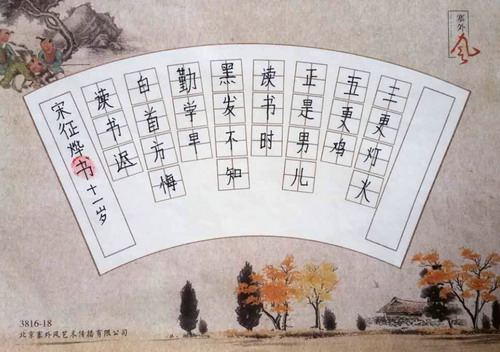 塞外风
三更灯火
五更鸡
正是男儿
读书时
黑发不知
勤学早
白首方悔
读书迟
宋征烨书十一岁
3816-18
北京塞外风艺术传播有限公司